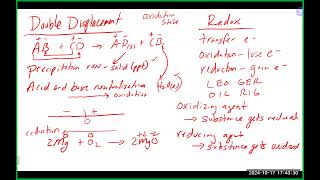 Double Displacement
oxidation
state
+ - + - + - + -
AB + CD → AD(s) + CB
Precipitation rxn - solid (ppt)
Acid and base neutralization H2O(l)
→ oxidation
- | +
0
reduction ←
0 0 +2 -2
2Mg + O2 → 2MgO
Redox
transfer e-
oxidation - lose e-
reduction - gain e-
LEO GER
OIL RIG
Oxidizing agent
→ Substance gets reduced
reducing agent
→ substance gets oxidized
2024-10-17 17:40:30